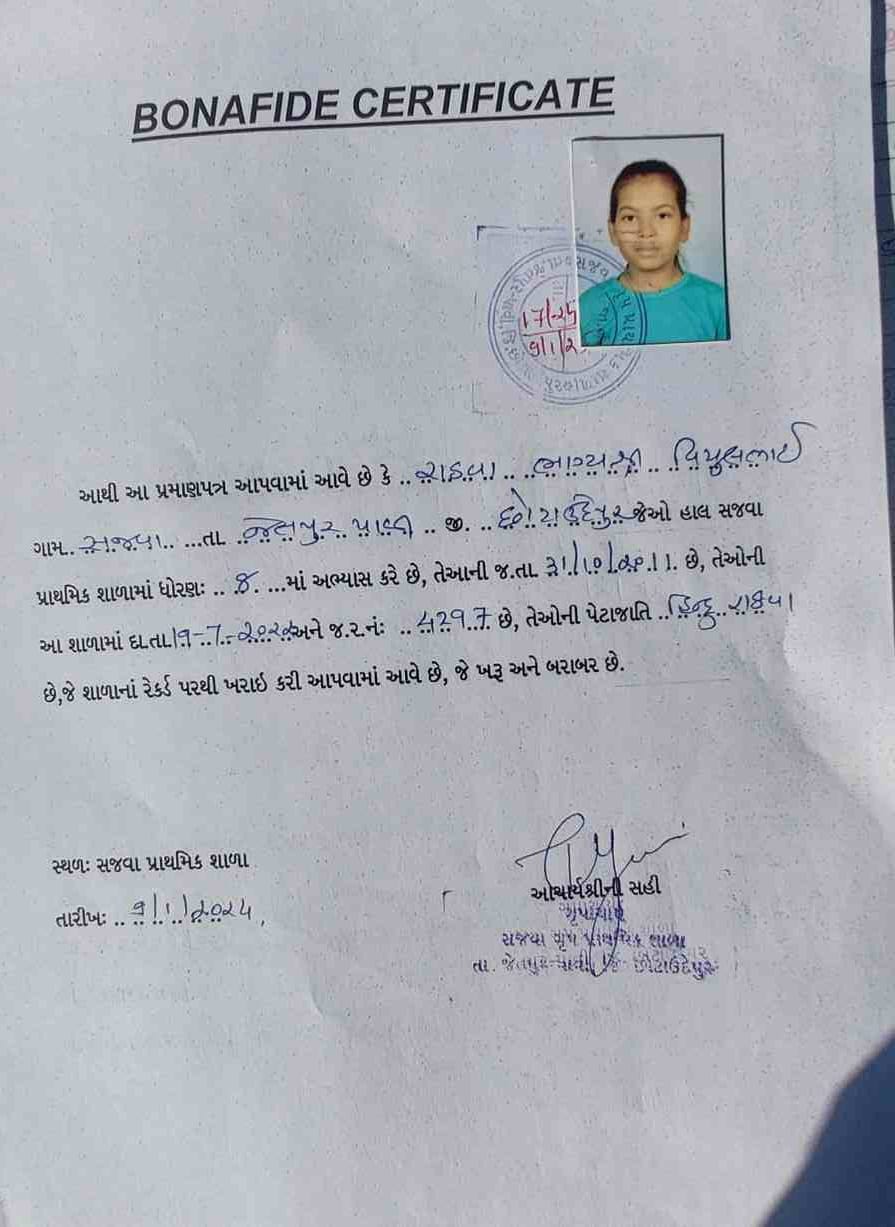 BONAFIDE CERTIFICATE
17/25
9/1/2
આથી આ પ્રમાણપત્ર આપવામાં આવે છે કે .. રાઠવા .. ભાગ્યશ્રી .. વિપુલભાઈ
ગામ.. સજવા.. ...તા .. જેતપુર પાવી .. જી. .. છોટાઉદેપુર જેઓ હાલ સજવા
પ્રાથમિક શાળામાં ધોરણઃ .. 8. ...માં અભ્યાસ કરે છે, તેઆની જ.તા. 31/10/2011. છે, તેઓની
આ શાળામાં દા.તા. અને જ.ર.નંઃ .. 4297 છે, તેઓની પેટાજાતિ .. હિન્દુ.. રાઠવા
છે,જે શાળાનાં રેકર્ડ પરથી ખરાઇ કરી આપવામાં આવે છે, જે ખરૂ અને બરાબર છે.
સ્થળઃ સજવા પ્રાથમિક શાળા
તારીખઃ .. 9/1/2025,
આચાર્યશ્રીની સહી
સજવા ગૃપ પ્રાથમિક શાળા
તા. જેતપુર-પાવી, જિ. છોટાઉદેપુર